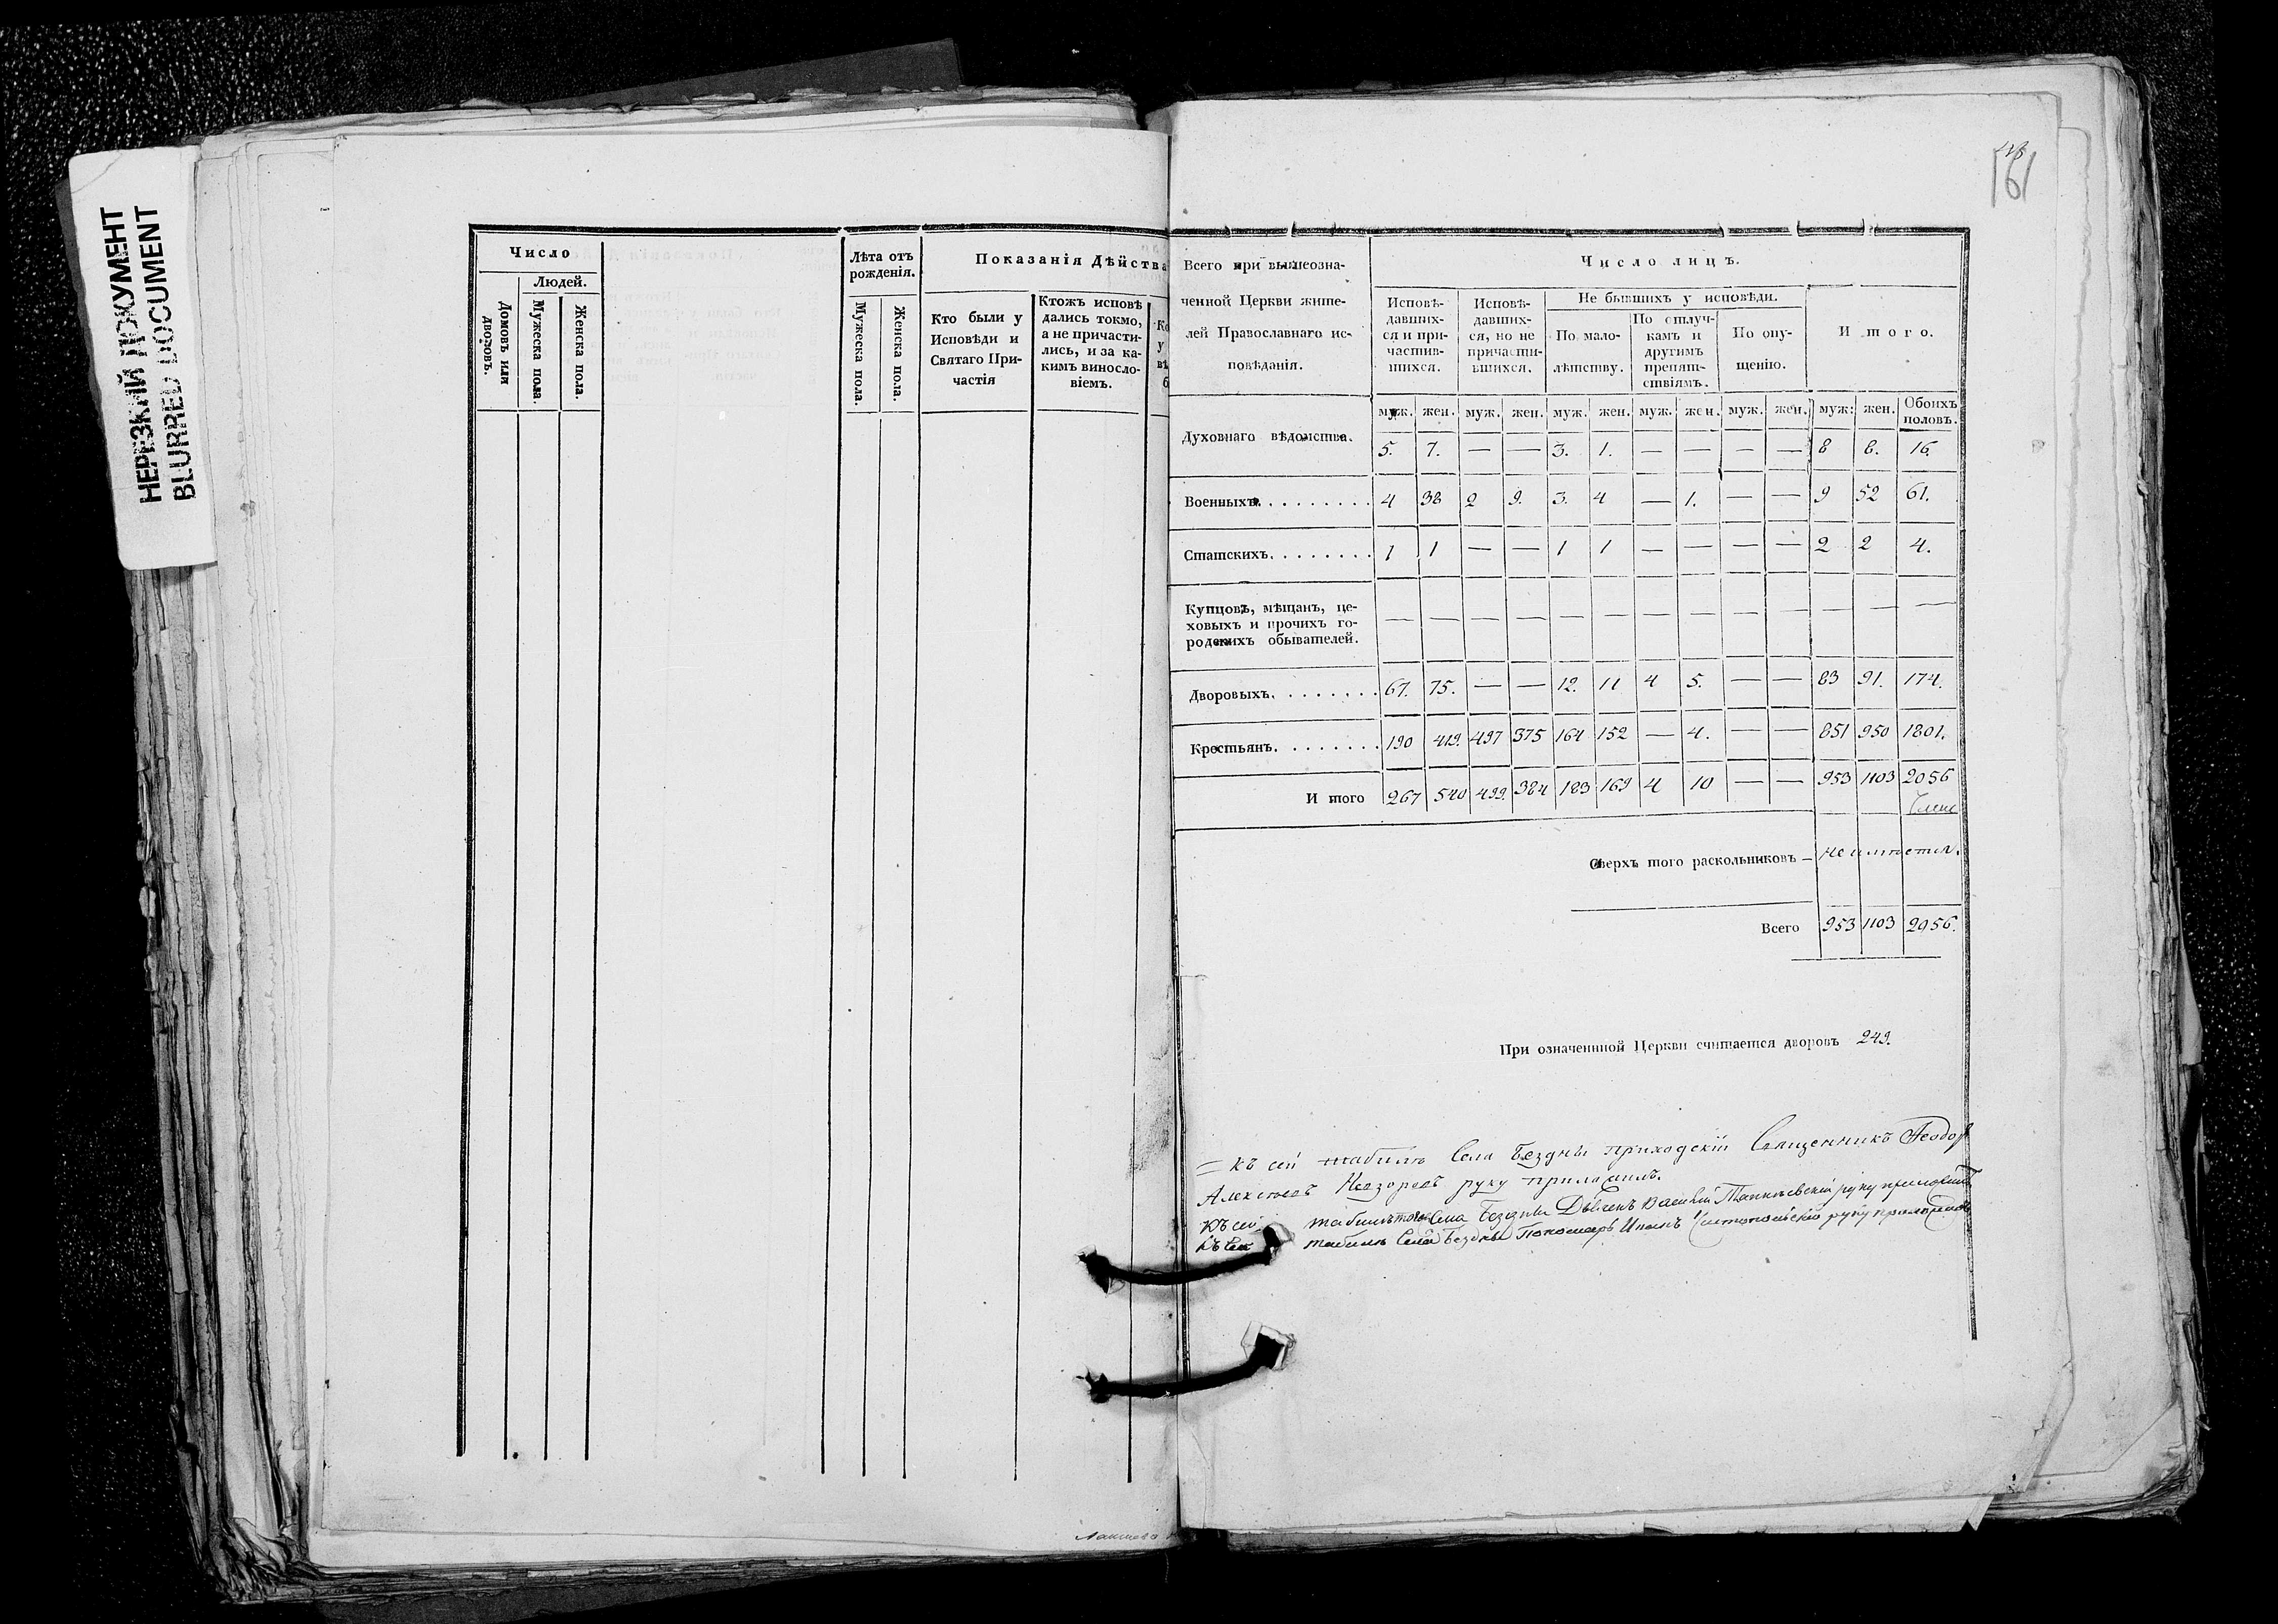 НЕРЕЗКИЙ ДОКУМЕНТ
BLURRED DOCUMENT
Число
Людей.
Домовъ или дворовъ.
Мужеска пола.
Женска пола.
Лѣта отъ
рожденія.
Мужеска пола.
Женска пола.
Показанія Дѣйства
Кто были у
Исповѣди и
Святаго При-
частія
Ктожъ исповѣ
дались токмо,
а не причасти-
лись, и за ка-
кимъ винносло-
віемъ.
161
Всего при вышеозна-
ченной Церкви жите-
лей Православнаго ис-
повѣданія.
Число лицъ.
Исповѣ-
давших-
ся и при-
частив-
шихся.
Исповѣ-
давших-
ся, но не
причасти-
вшихся.
Не бывшихъ у исповѣди.
По мало-
лѣтству.
По отлуч-
камъ и
другимъ
препят-
ствіямъ.
По опу-
щенію.
Итого.
муж. жен. муж. жен. муж. жен. муж. жен. муж. жен. муж: жен. Обоихъ половъ.
Духовнаго вѣдомства. 5. 7. — — 3. 1. — — — — 8 8. 16.
Военныхъ. 4 38 2 9. 3. 4 — 1. — — 9 52 61.
Статскихъ. 1 1 — — 1 1 — — — — 2 2 4.
Купцовъ, мѣщанъ, це-
ховыхъ и прочихъ го-
родскихъ обывателей. — — — — — — — — — — — — —
Дворовыхъ. 67. 75. — — 12. 11 4 5. — — 83 91. 174.
Крестьянъ. 190 419. 497 375 164 152 — 4. — — 851 950 1801.
И того 267 540 499. 384 183 169 4 10 — — 953 1103 2056
Сверхъ того раскольниковъ — не имѣется.
Всего 953 1103 2056.
При означенной Церкви считается дворовъ 249.
Къ сей табели Села Бездны приходскій Священникъ Феодор
Алексѣевъ Невзоровъ руку приложилъ.
Къ сей табели тогожъ Села Бездны Дьяченъ Василій руку приложилъ
Къ сей табели Села Бездны Пономарь Иванъ руку приложилъ